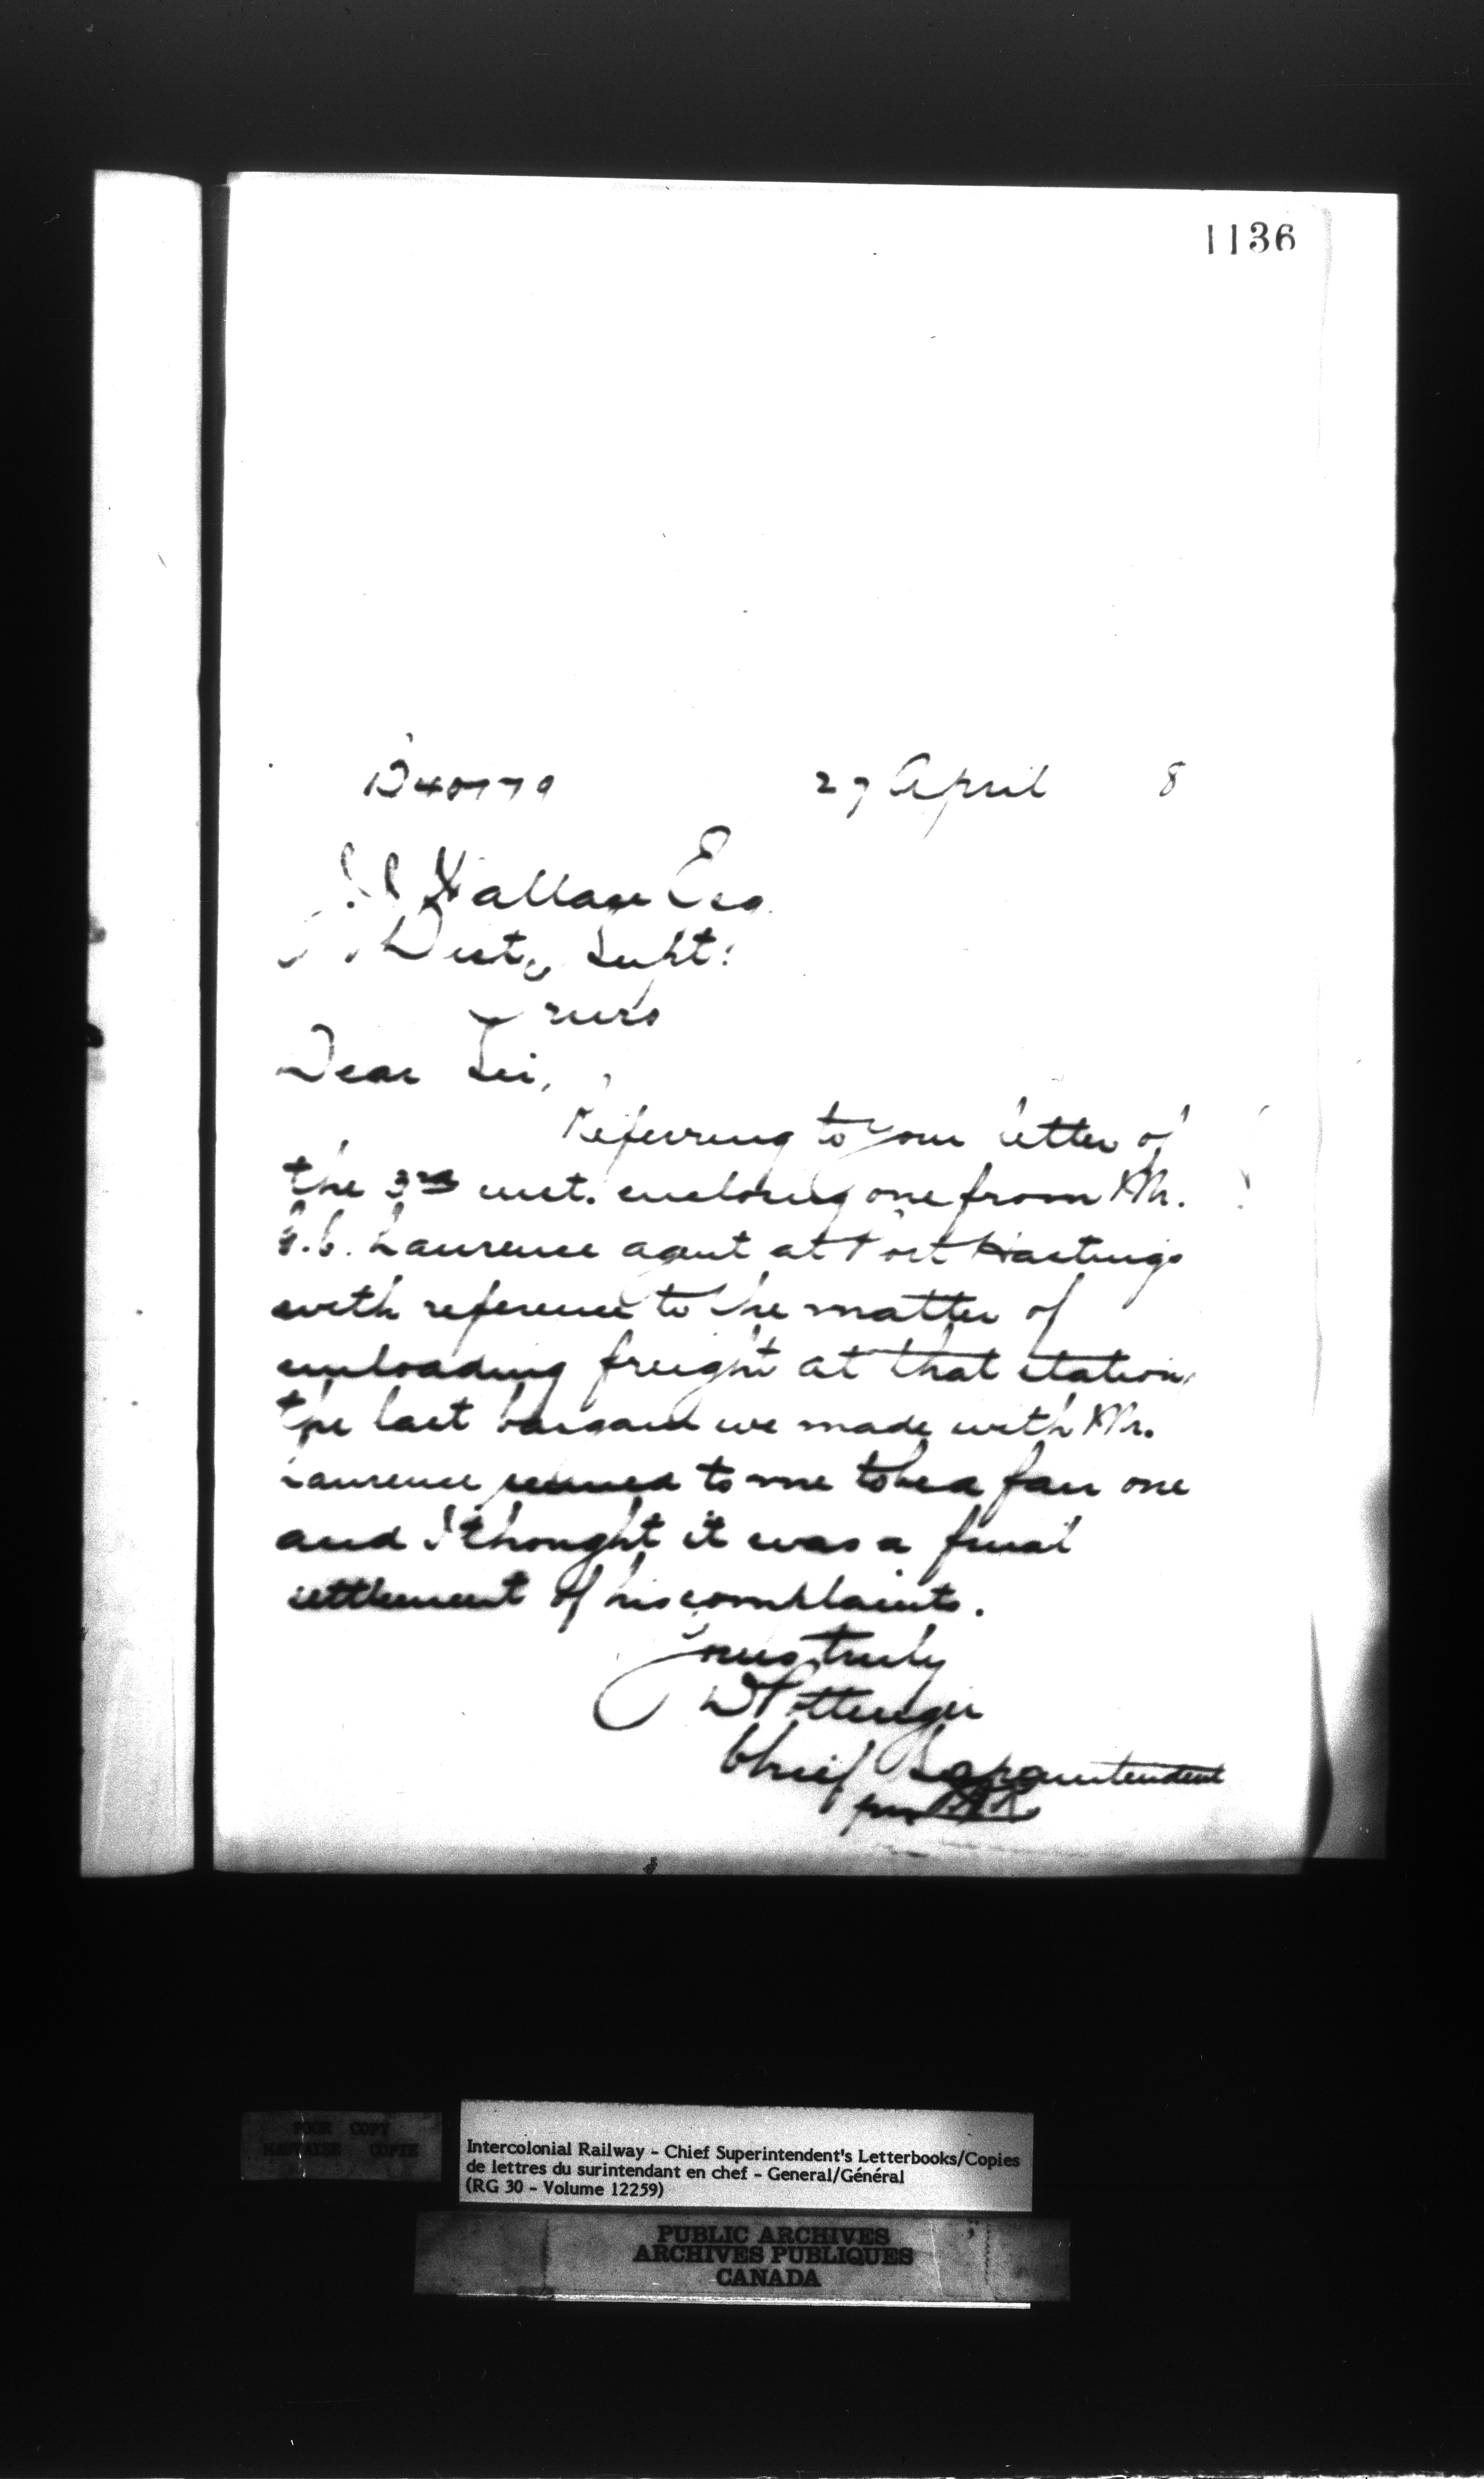 1136
27 April 8
Wallace Esq
Dist. Supt:
Truro
Dear Sir,
Referring to your letter of
the 3rd inst. enclosing one from Mr.
Laurence agent at Port Hastings
with reference to the matter of
unloading freight at that station,
the last bargain we made with Mr.
Laurence seemed to me to be a fair one
and I thought it was a final
settlement of his complaints.
Yours truly
D Pottinger
Chief Superintendent
per
POOR COPY
MAUVAISE COPIE
Intercolonial Railway - Chief Superintendent's Letterbooks/Copies
de lettres du surintendant en chef - General/Général
(RG 30 - Volume 12259)
PUBLIC ARCHIVES
ARCHIVES PUBLIQUES
CANADA